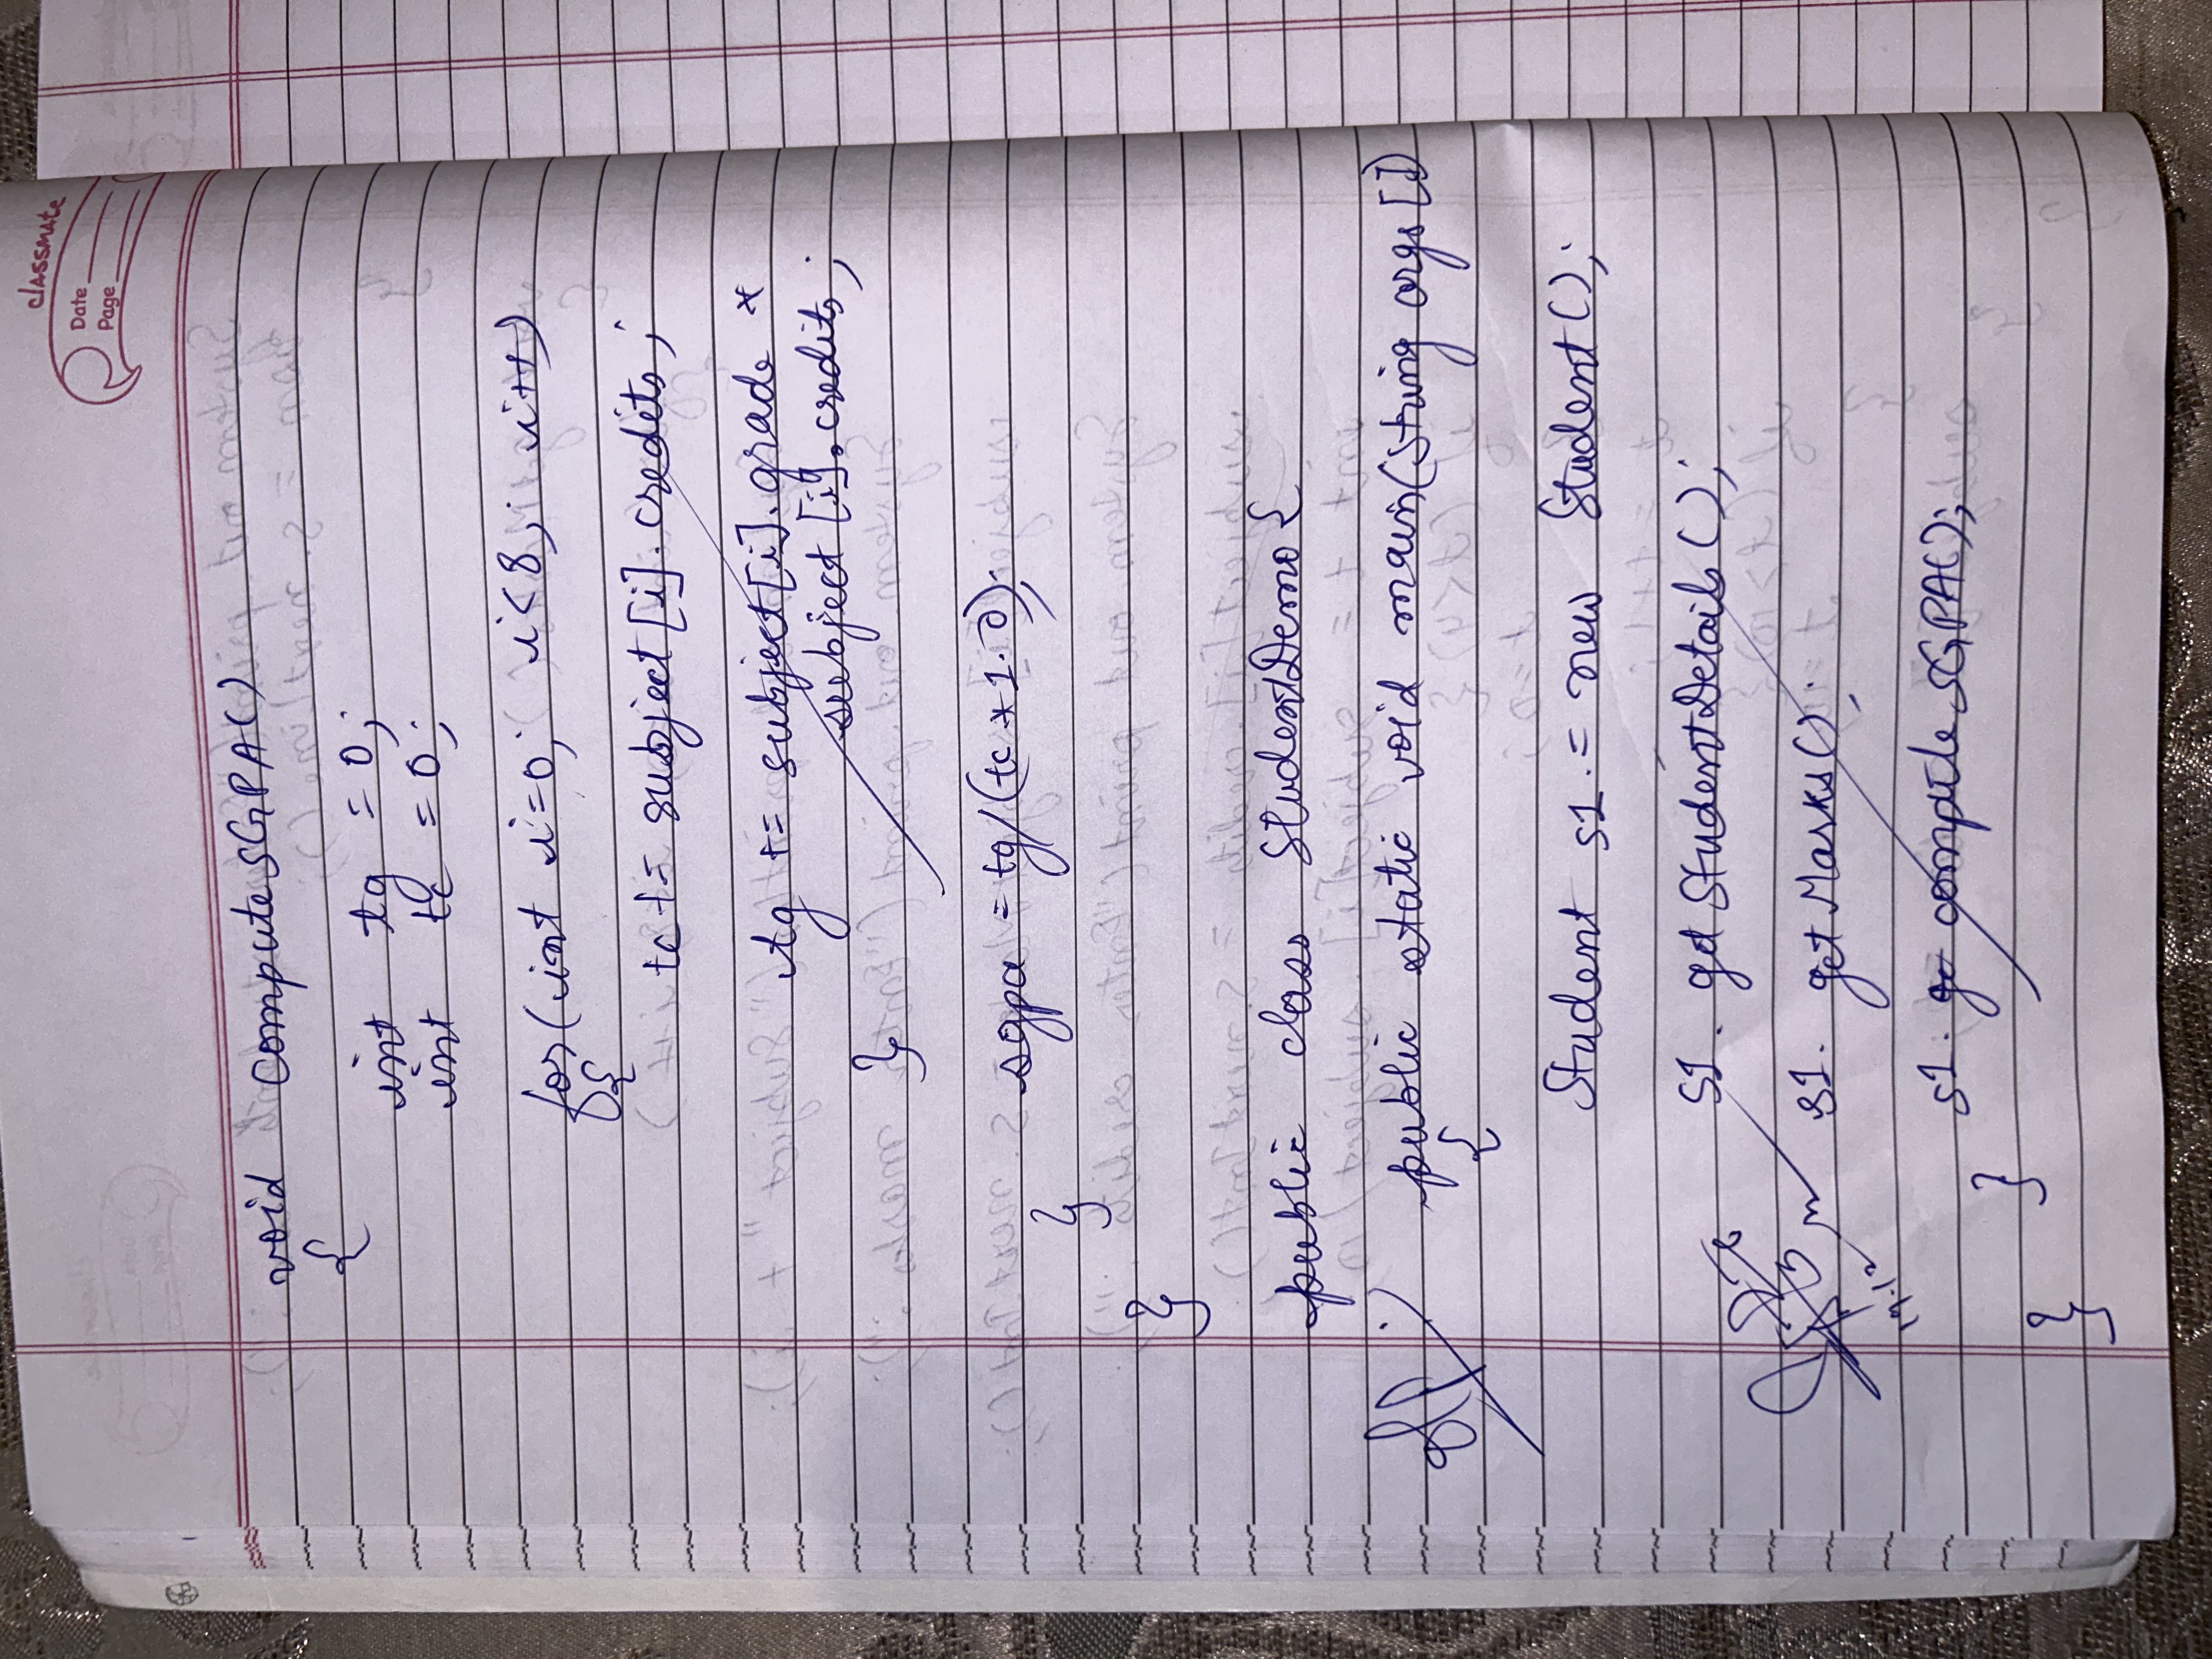 classmate
Date
Page
void computeSGPA()
{
int tg = 0;
int tc = 0;
for(int i=0; i<8; i++)
{
tc += subject[i].credits;
tg += subject[i].grade *
subject[i].credits;
}
sgpa = tg/(tc*1.0);
}
}
public class StudentDemo{
public static void main(String args[])
{
Student s1 = new Student();
s1. getStudentDetails();
s1. getMarks();
s1. computeSGPA();
}
}